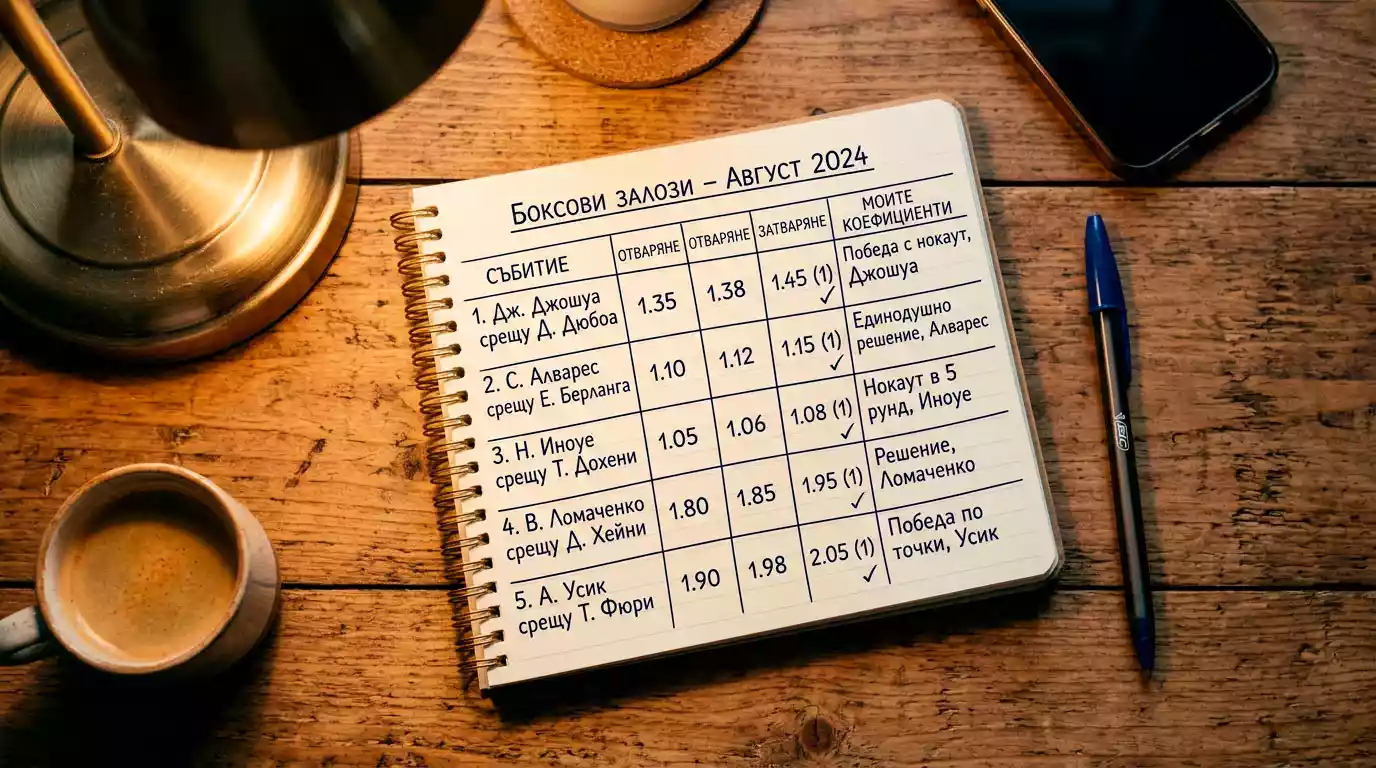 Боксови залози – Август 2024
СЪБИТИЕ
ОТВАРЯНЕ
ОТВАРЯНЕ
ЗАТВАРЯНЕ
МОИТЕ
КОЕФИЦИЕНТИ
1. Дж. Джошуа
срещу Д. Дюбоа
1.35
1.38
1.45 (1)
✓
Победа с нокаут,
Джошуа
2. С. Алварес
срещу Е. Берланга
1.10
1.12
1.15 (1)
✓
Единодушно
решение, Алварес
3. Н. Иноуе
срещу Т. Дохени
1.05
1.06
1.08 (1)
✓
Нокаут в 5
рунд, Иноуе
4. В. Ломаченко
срещу Д. Хейни
1.80
1.85
1.95 (1)
✓
Решение,
Ломаченко
5. А. Усик
срещу Т. Фюри
1.90
1.98
2.05 (1)
✓
Победа по
точки, Усик